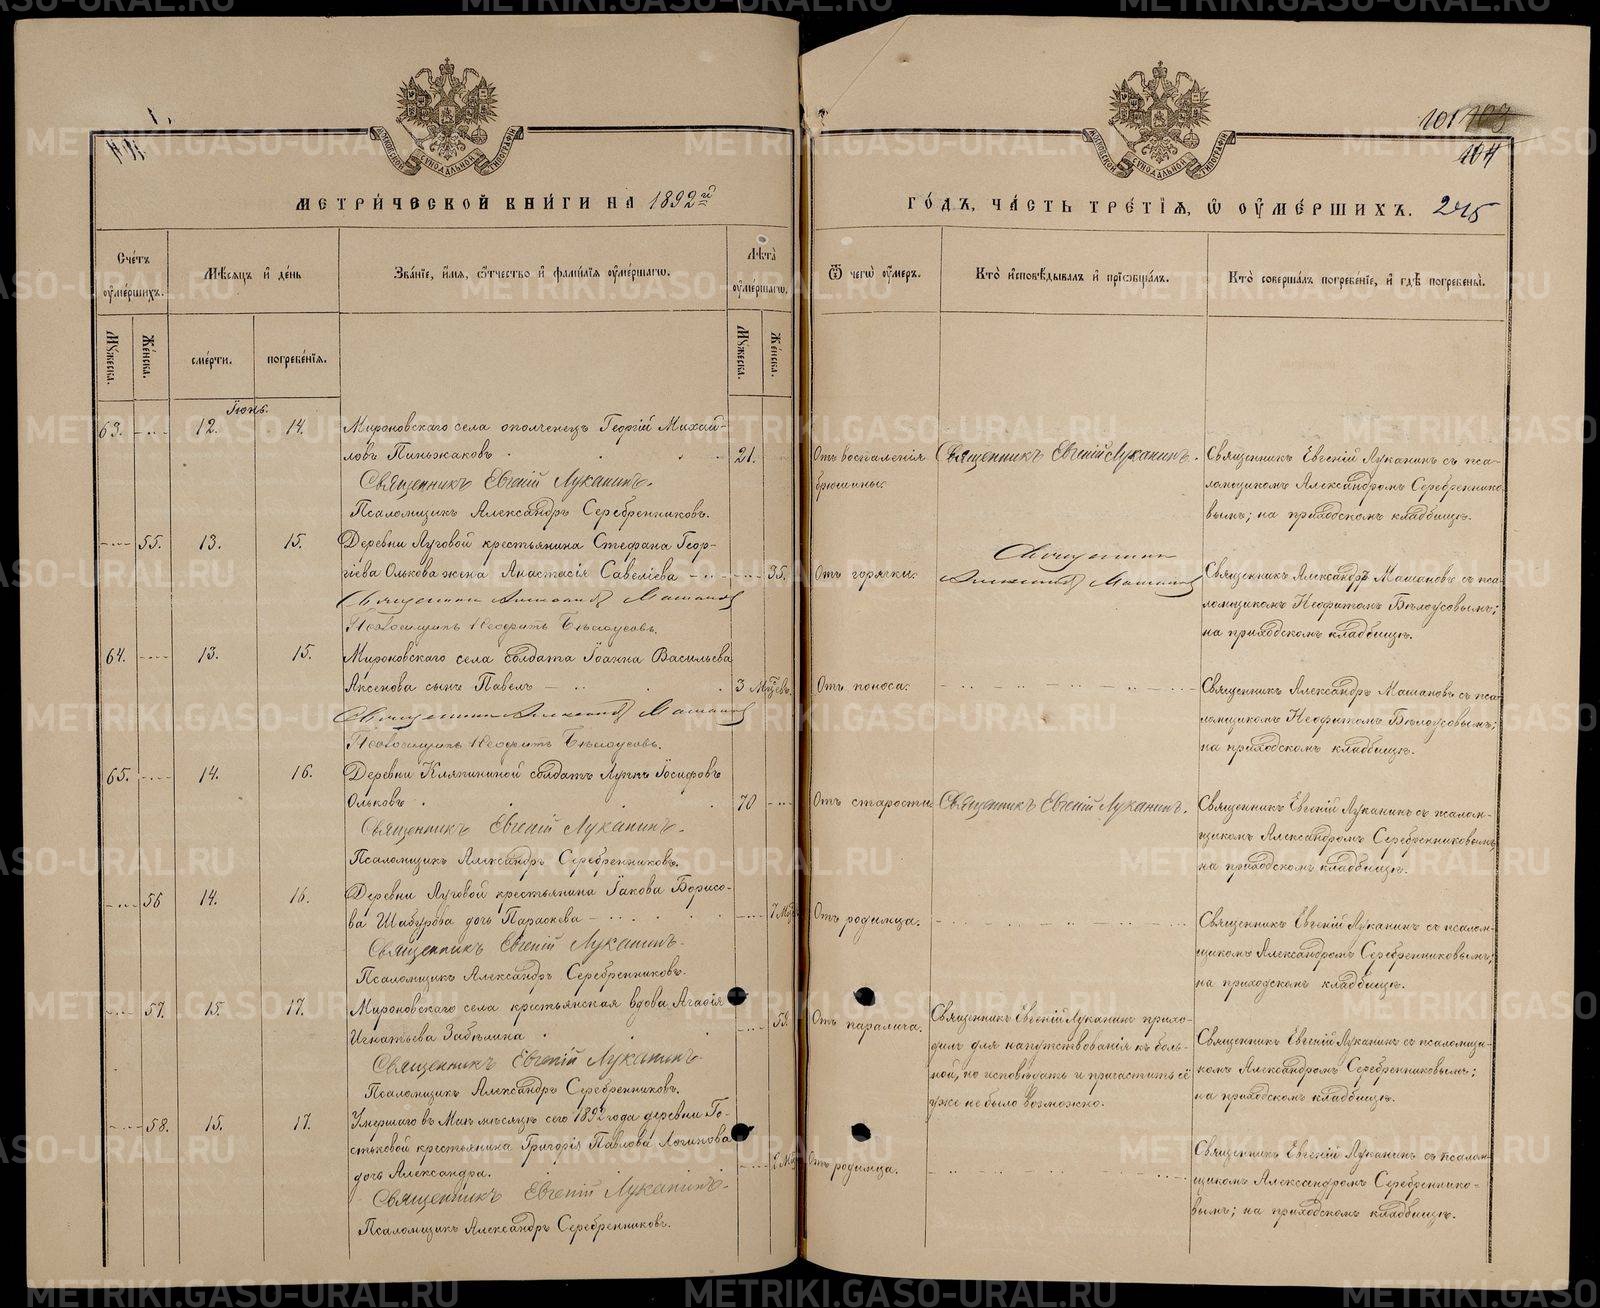 101 103
104
МЕТРИЧЕСКОЙ КНИГИ НА 1892й ГОДЪ, ЧАСТЬ ТРЕТІЯ, Ѿ ОУМЕРШИХЪ. 245
МОСКОВСКОЙ СѴНОДАЛЬНОЙ ТИПОГРАФІИ
МОСКОВСКОЙ СѴНОДАЛЬНОЙ ТИПОГРАФІИ
Счетъ оумершихъ.
Мѣсяцъ и день
Званіе, имя, отчество и фамилія оумершаго.
Лѣта оумершаго.
Ѿ чегѡ оумеръ.
Кто исповѣдывалъ и пріобщалъ.
Кто совершалъ погребеніе, и гдѣ погребены.
Мужеска.
Женска.
смерти.
погребенія.
Мужеска.
Женска.
Іюнь.
63. 12. 14. Мироновскаго села ополченецъ Георгій Михай-
ловъ Пиньжаковъ 21. Отъ воспаленія
брюшины.
Священникъ Евгеній Луканинъ.
Священникъ Евгеній Луканинъ съ пса-
ломщикомъ Александромъ Серебреннико-
вымъ; на приходскомъ кладбищѣ.
Священникъ Евгеній Луканинъ.
Псаломщикъ Александръ Серебренниковъ.
55. 13. 15. Деревни Луговой крестьянина Стефана Геор-
гіева Олькова жена Анастасія Савеліева 35. Отъ горячки.
Священникъ
Александръ Машановъ
Священникъ Александръ Машановъ съ пса-
ломщикомъ Неофитомъ Бѣлоусовымъ;
на приходскомъ кладбищѣ.
Священникъ Александръ Машановъ
Псаломщикъ Неофитъ Бѣлоусовъ.
64. 13. 15. Мироновскаго села солдата Іоанна Васильева
Аксенова сынъ Павелъ 3 Мѣсяцевъ. Отъ поноса.
Священникъ Александръ Машановъ съ пса-
ломщикомъ Неофитомъ Бѣлоусовымъ;
на приходскомъ кладбищѣ.
Священникъ Александръ Машановъ
Псаломщикъ Неофитъ Бѣлоусовъ.
65. 14. 16. Деревни Кляпининой солдатъ Луппъ Іосифовъ
Ольковъ 70 Отъ старости
Священникъ Евгеній Луканинъ.
Священникъ Евгеній Луканинъ съ псалом-
щикомъ Александромъ Серебренниковымъ;
на приходскомъ кладбищѣ.
Священникъ Евгеній Луканинъ.
Псаломщикъ Александръ Серебренниковъ.
56 14. 16. Деревни Луговой крестьянина Іакова Борисо-
ва Шабурова дочь Параскева 7 Мѣс Отъ родимца.
Священникъ Евгеній Луканинъ съ псалом-
щикомъ Александромъ Серебренниковымъ;
на приходскомъ кладбищѣ.
Священникъ Евгеній Луканинъ.
Псаломщикъ Александръ Серебренниковъ.
57. 15. 17. Мироновскаго села крестьянская вдова Агафія
Игнатьева Забѣлина 59. Отъ паралича.
Священникъ Евгеній Луканинъ прихо-
дилъ для напутствованія къ боль-
ной, но исповѣдать и причастить её
уже не было возможно.
Священникъ Евгеній Луканинъ съ псаломщи-
комъ Александромъ Серебренниковымъ;
на приходскомъ кладбищѣ.
Священникъ Евгеній Луканинъ.
Псаломщикъ Александръ Серебренниковъ.
58. 15. 17. Умершаго въ Маѣ мѣсяцѣ сего 1892 года деревни Го-
стьковой крестьянина Григорія Павлова Логинова
дочь Александра. Отъ родимца.
Священникъ Евгеній Луканинъ съ псалом-
щикомъ Александромъ Серебреннико-
вымъ; на приходскомъ кладбищѣ.
Священникъ Евгеній Луканинъ.
Псаломщикъ Александръ Серебренниковъ.
METRIKI.GASO-URAL.RU